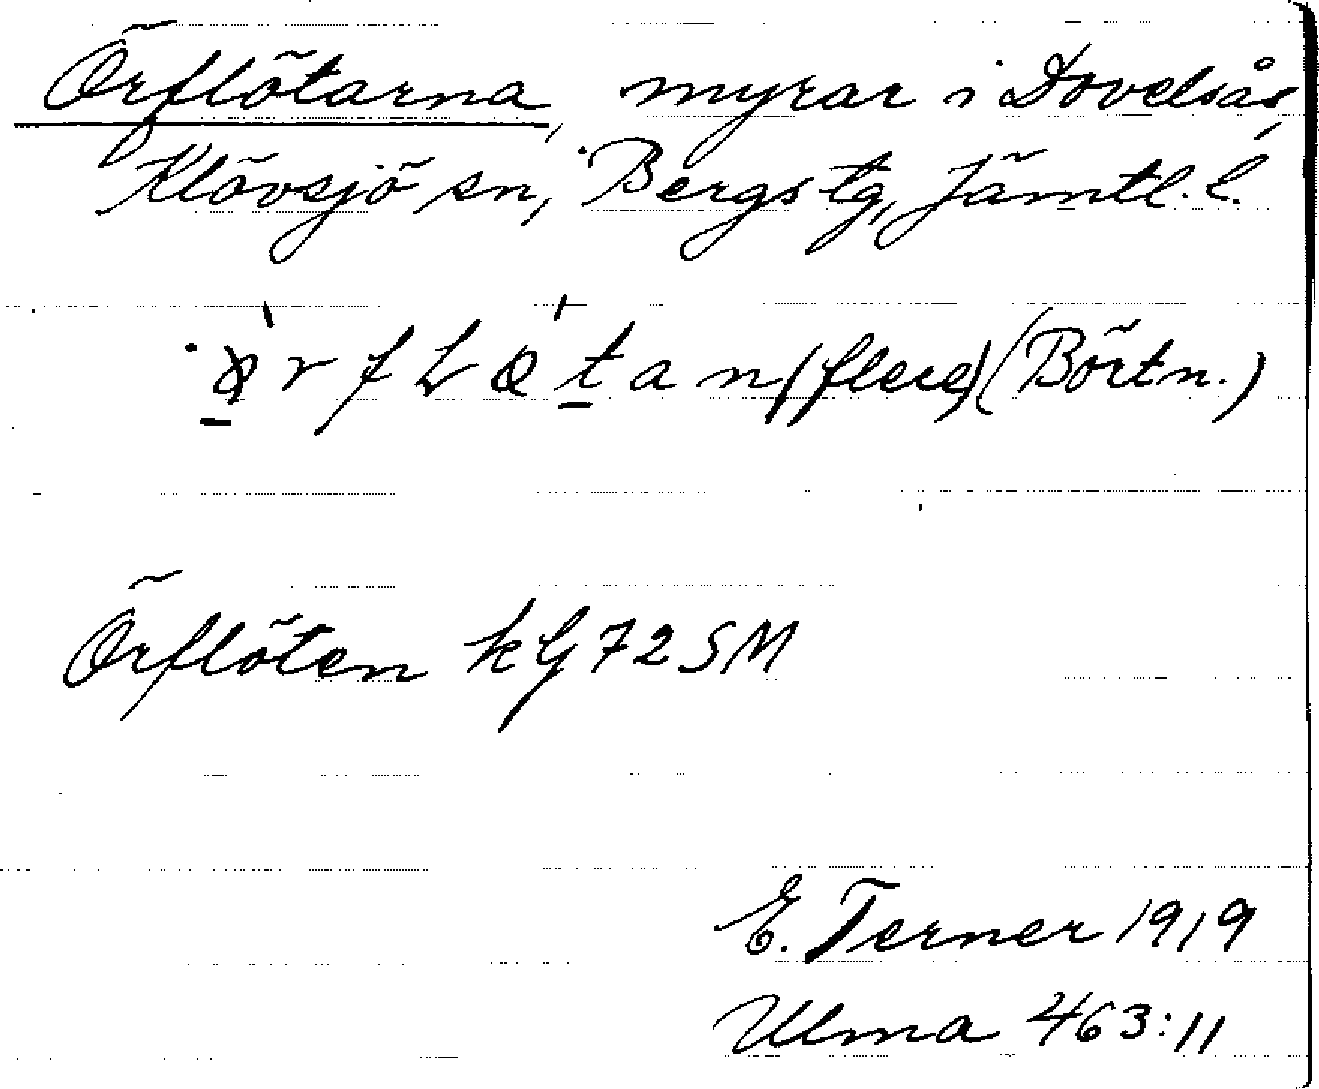 Örflötarna, myrar i Dovelsås,
Klövsjö sn, Bergs tg, Jämtl. l.
(flere) (Börtn.)
Örflöten kG72SM
E. Terner 1919
Ulma 463:11